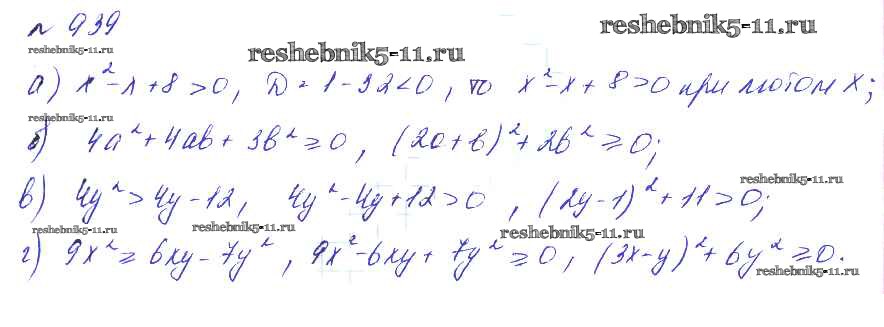 № 939
reshebnik5-11.ru
reshebnik5-11.ru
а) x²-x+8>0, D=1-32<0, то x²-x+8>0 при любом x;
reshebnik5-11.ru
б) 4a²+4ab+3b²≥0, (2a+b)²+2b²≥0;
reshebnik5-11.ru
в) 4y²>4y-12, 4y²-4y+12>0, (2y-1)²+11>0;
reshebnik5-11.ru
reshebnik5-11.ru
reshebnik5-11.ru
г) 9x²≥6xy-7y², 9x²-6xy+7y²≥0, (3x-y)²+6y²≥0.
reshebnik5-11.ru